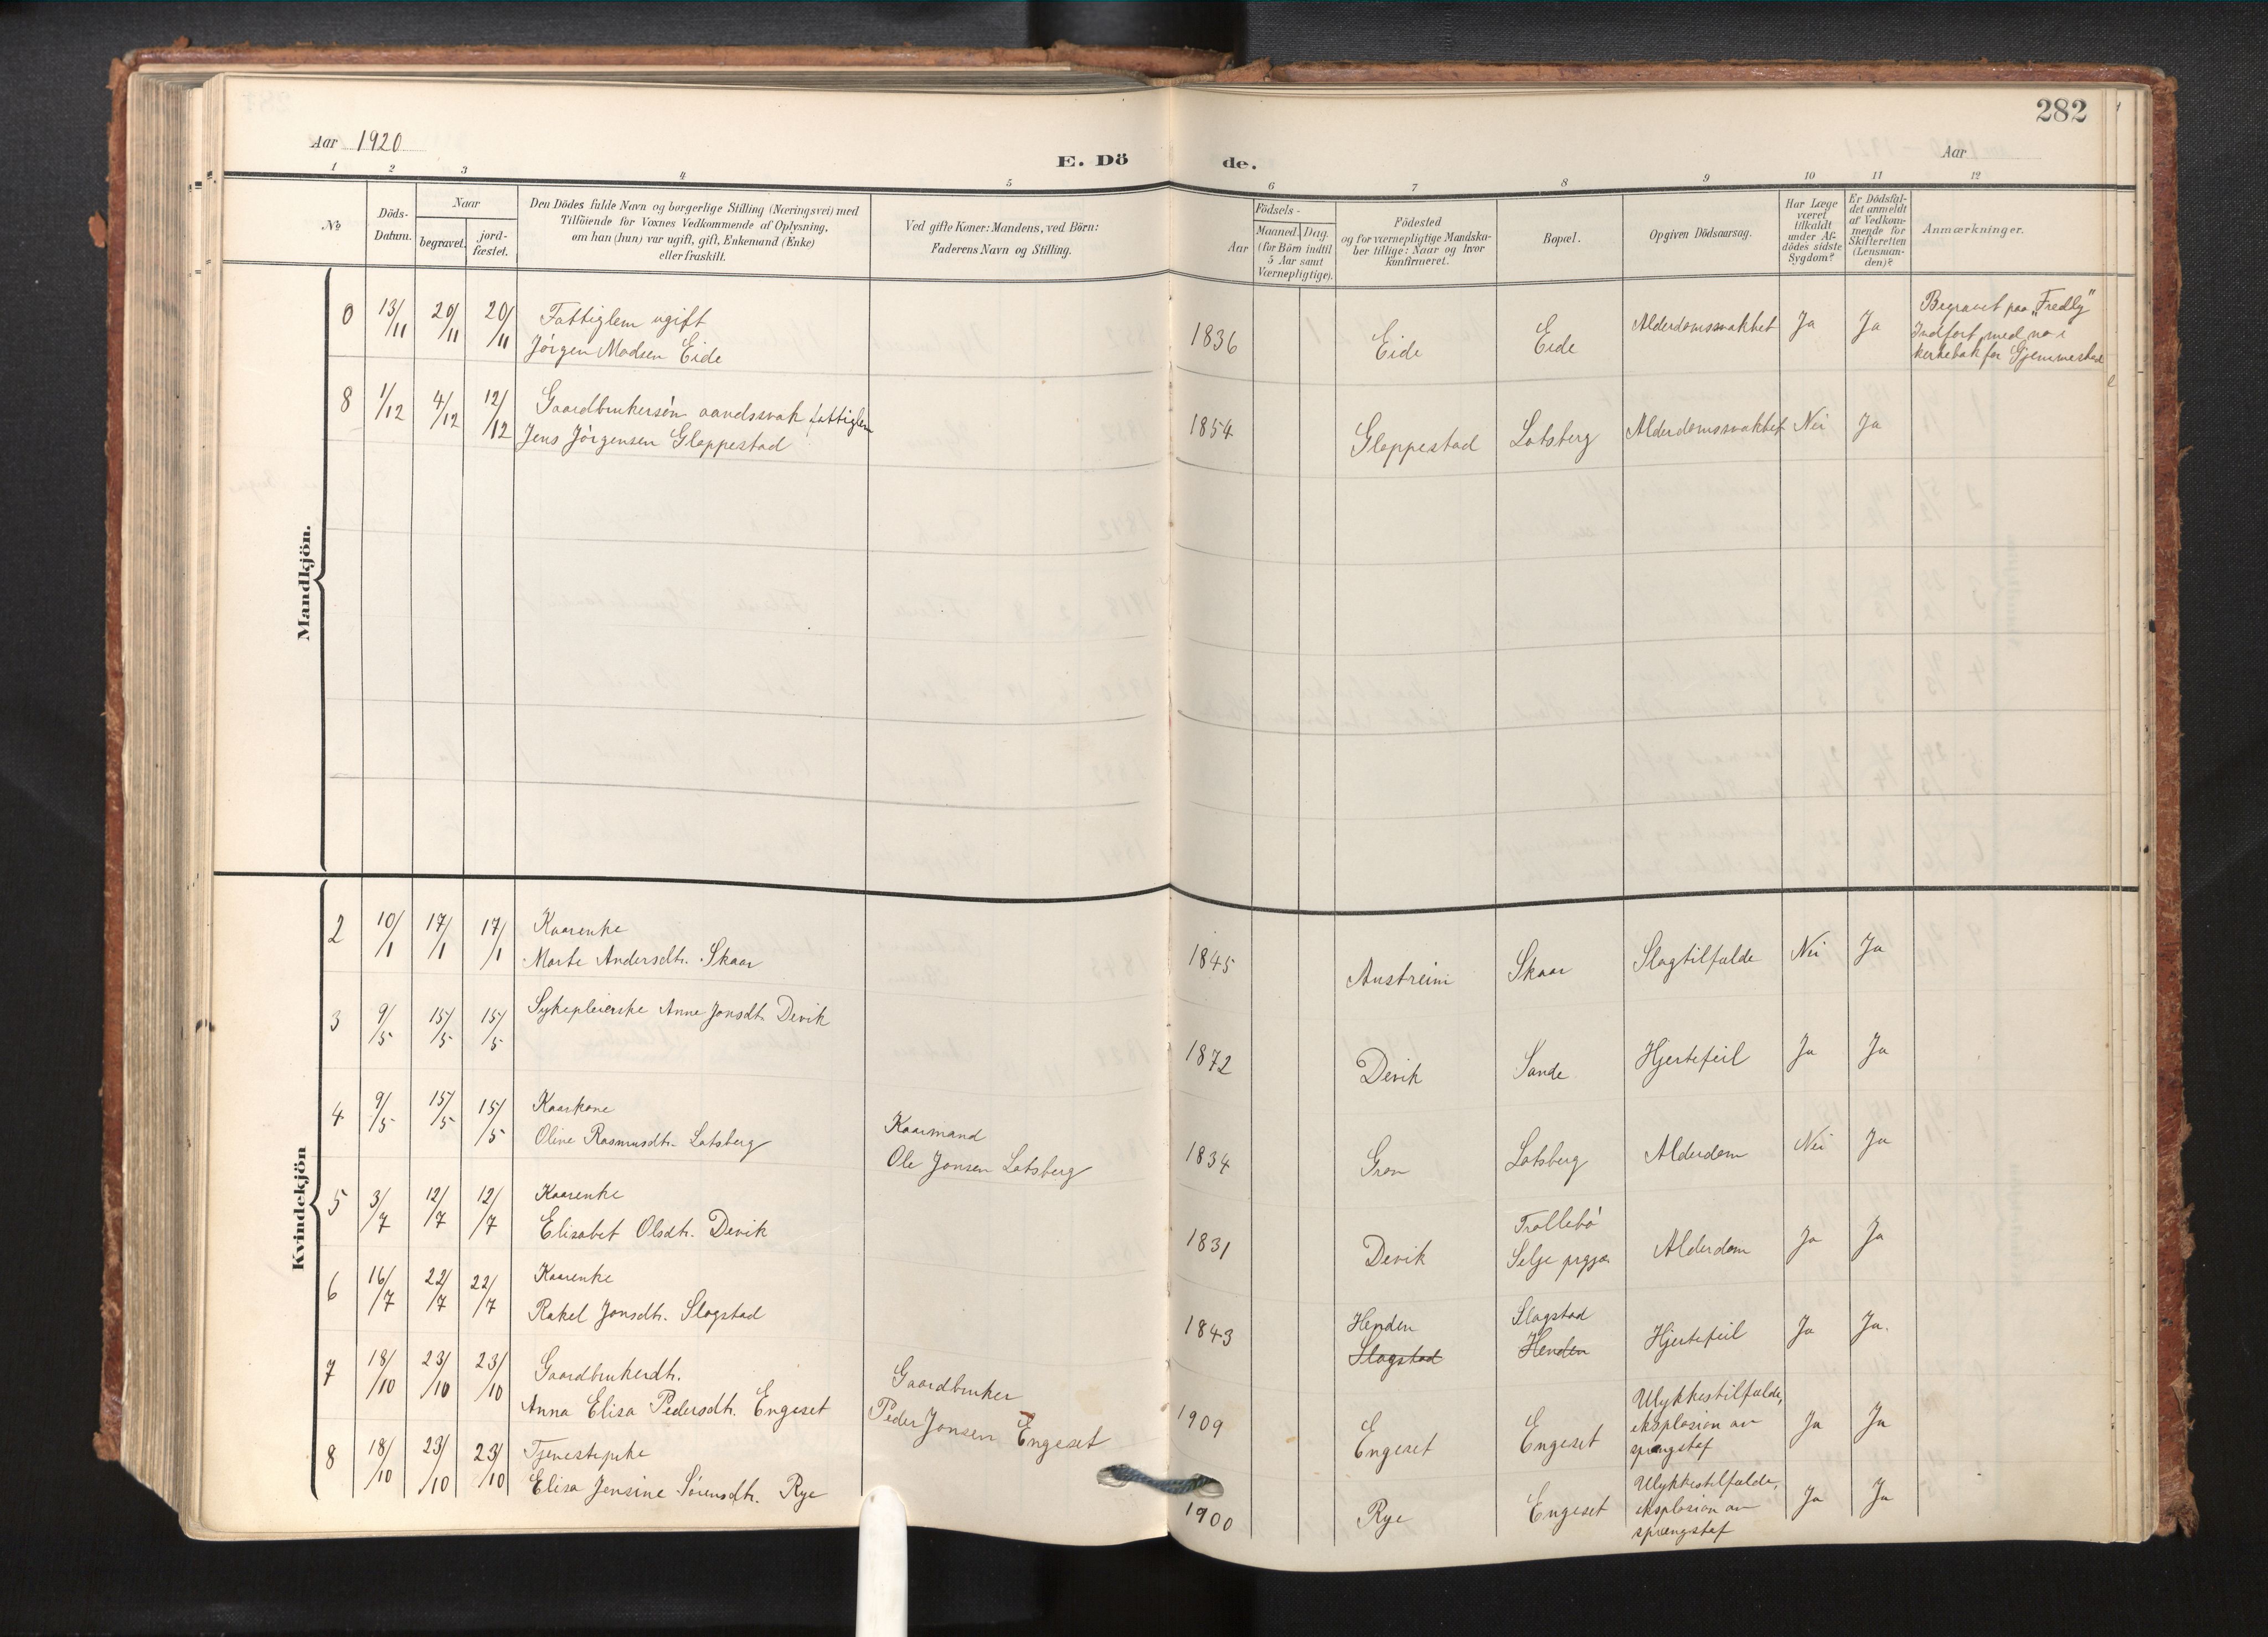 282
Aar 1920
E. Dö de.
Aar
1 2 3 4 5 6 7 8 9 10 11 12
No
Döds-Datum.
Naar
begravet.
jord-fæstet.
Den Dödes fulde Navn og borgerlige Stilling (Næringsvei) med
Tilföiende for Voxnes Vedkommende af Oplysning,
om han (hun) var ugift, gift, Enkemand (Enke)
eller fraskilt.
Ved gifte Koner: Mandens, ved Börn:
Faderens Navn og Stilling.
Födsels-
Aar
Maaned. Dag.
(for Börn indtil
5 Aar samt
Værnepligtige).
Födested
og for værnepligtige Mandska-
ber tillige: Naar og hvor
konfirmeret.
Bopæl.
Opgiven Dödsaarsag.
Har Læge
været
tilkaldt
under Af-
dödes sidste
Sygdom?
Er Dödsfal-
det anmeldt
af Vedkom-
mende for
Skifteretten
(Lensman-
den)?
Anmærkninger.
Mandkjön.
0 13/11 20/11 20/11 Fattiglem ugift
Jörgen Madsen Eide
1836 Eide Eide Alderdomssvakhet Ja Ja
Begravet paa "Fredly"
Indfört med no i
kirkebok for Gjemmestad
8 1/12 4/12 12/12 Gaardbrukersön aandssvak fattiglem
Jens Jörgensen Gloppestad
1854 Gloppestad Lotsberg Alderdomssvakhet Nei Ja
Kvindekjön
2 10/1 17/1 17/1 Kaarenke
Marte Andersdtr. Skaar
1845 Austreim Skaar Slagtilfælde Nei Ja
3 9/5 15/5 15/5 Sykepleierske Anne Jonsdtr. Devik
1872 Devik Sande Hjertefeil Ja Ja
4 9/5 15/5 15/5 Kaarkone
Oline Rasmusdtr. Lotsberg
Kaarmand
Ole Jonsen Lotsberg
1834 Gron Lotsberg Alderdom Nei Ja
5 3/7 12/7 12/7 Kaarenke
Elisabet Olsdtr. Devik
1831 Devik Trollebö
Selje prgja. Alderdom Ja Ja
6 16/7 22/7 22/7 Kaarenke
Rakel Jonsdtr. Slagstad
1843 Henden
Slagstad
Slagstad
Henden
Hjertefeil Ja Ja.
7 18/10 23/10 23/10 Gaardbrukerdtr.
Anna Elisa Pedersdtr. Engeset
Gaardbruker
Peder Jonsen Engeset
1909 Engeset Engeset Ulykkestilfælde,
eksplosion av
sprengstof Ja Ja
8 18/10 23/10 23/10 Tjenestepike
Elisa Jensine Sörensdtr. Rye
1900 Rye Engeset Ulykkestilfælde,
eksplosion av
sprængstof Ja Ja